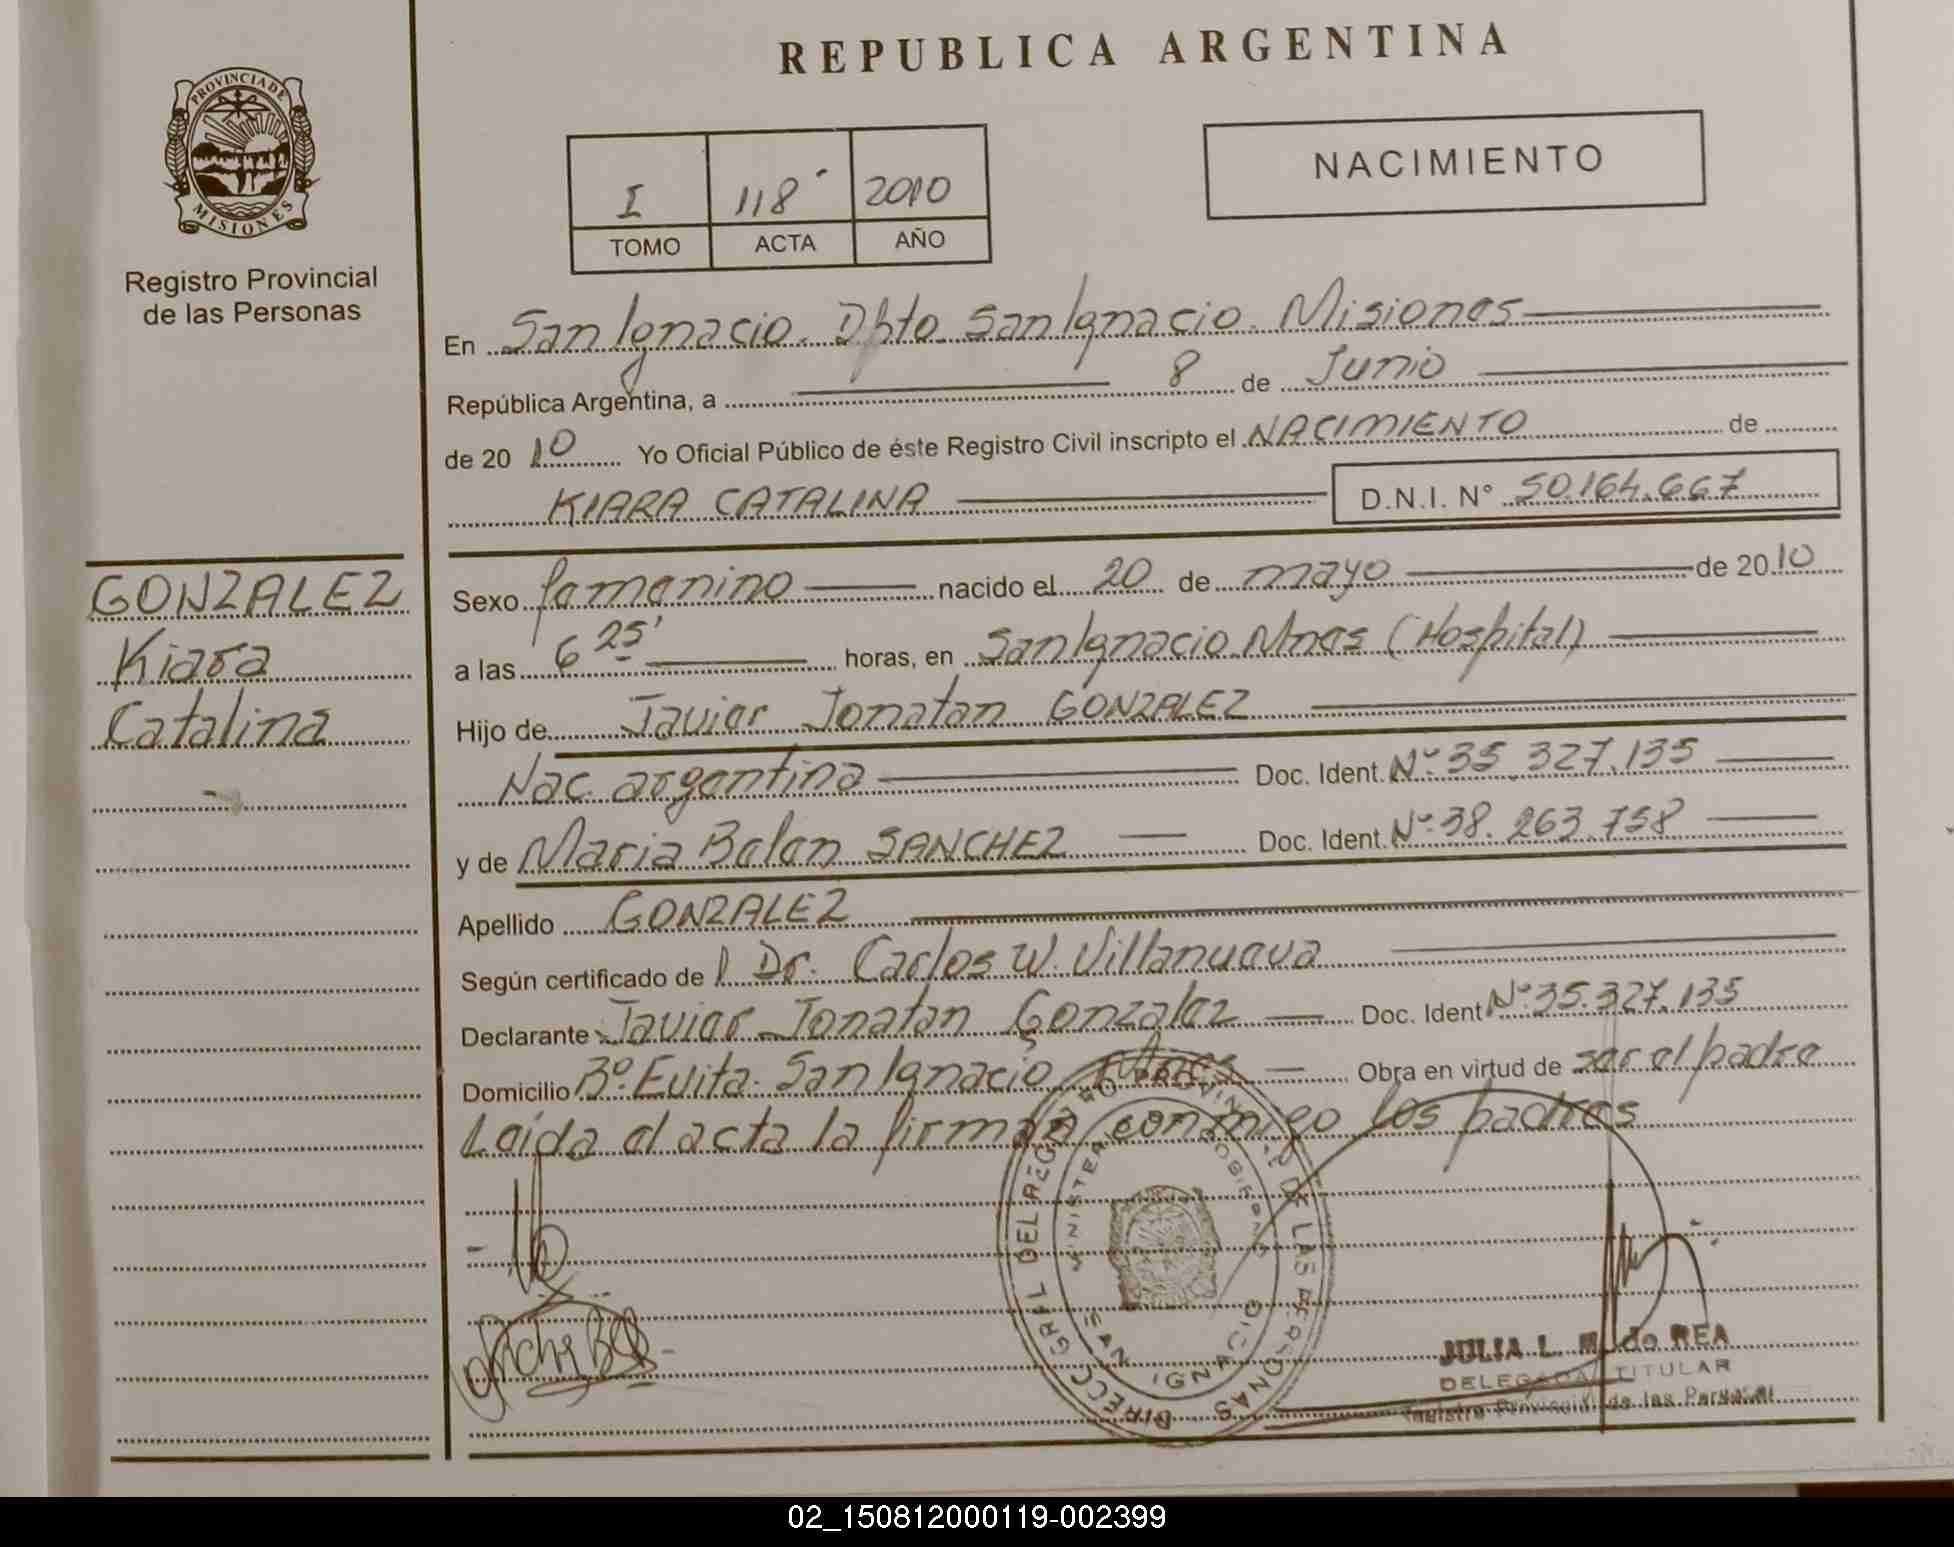 REPUBLICA ARGENTINA
PROVINCIA DE
MISIONES
Registro Provincial
de las Personas
I 118 2010
TOMO ACTA AÑO
NACIMIENTO
En San Ignacio. Dpto. San Ignacio. Misiones
República Argentina, a 8 de Junio
de 2010 Yo Oficial Público de éste Registro Civil inscripto el NACIMIENTO de
KIARA CATALINA D.N.I. N° 50.164.667
GONZALEZ
Kiara
Catalina
Sexo femenino nacido el 20 de mayo de 2010
a las 6 25' horas, en San Ignacio. Mnes (Hospital)
Hijo de Javier Jonatan GONZALEZ
Nac. argentina Doc. Ident. N° 35.327.135
y de Maria Belen SANCHEZ Doc. Ident. N° 38.263.758
Apellido GONZALEZ
Según certificado de l Dr. Carlos W. Villanueva
Declarante Javier Jonatan Gonzalez Doc. Ident N° 35.327.135
Domicilio B° Evita. San Ignacio Mnes Obra en virtud de ser el padre
Leída el acta la firman conmigo los padres
DIRECC. GRAL DEL REGISTRO PROVINCIAL DE LAS PERSONAS
MINISTERIO GOBIERNO
SAN IGNACIO
JULIA L. M. de REA
DELEGADA TITULAR
Registro Provincial de las Personas
02_150812000119-002399